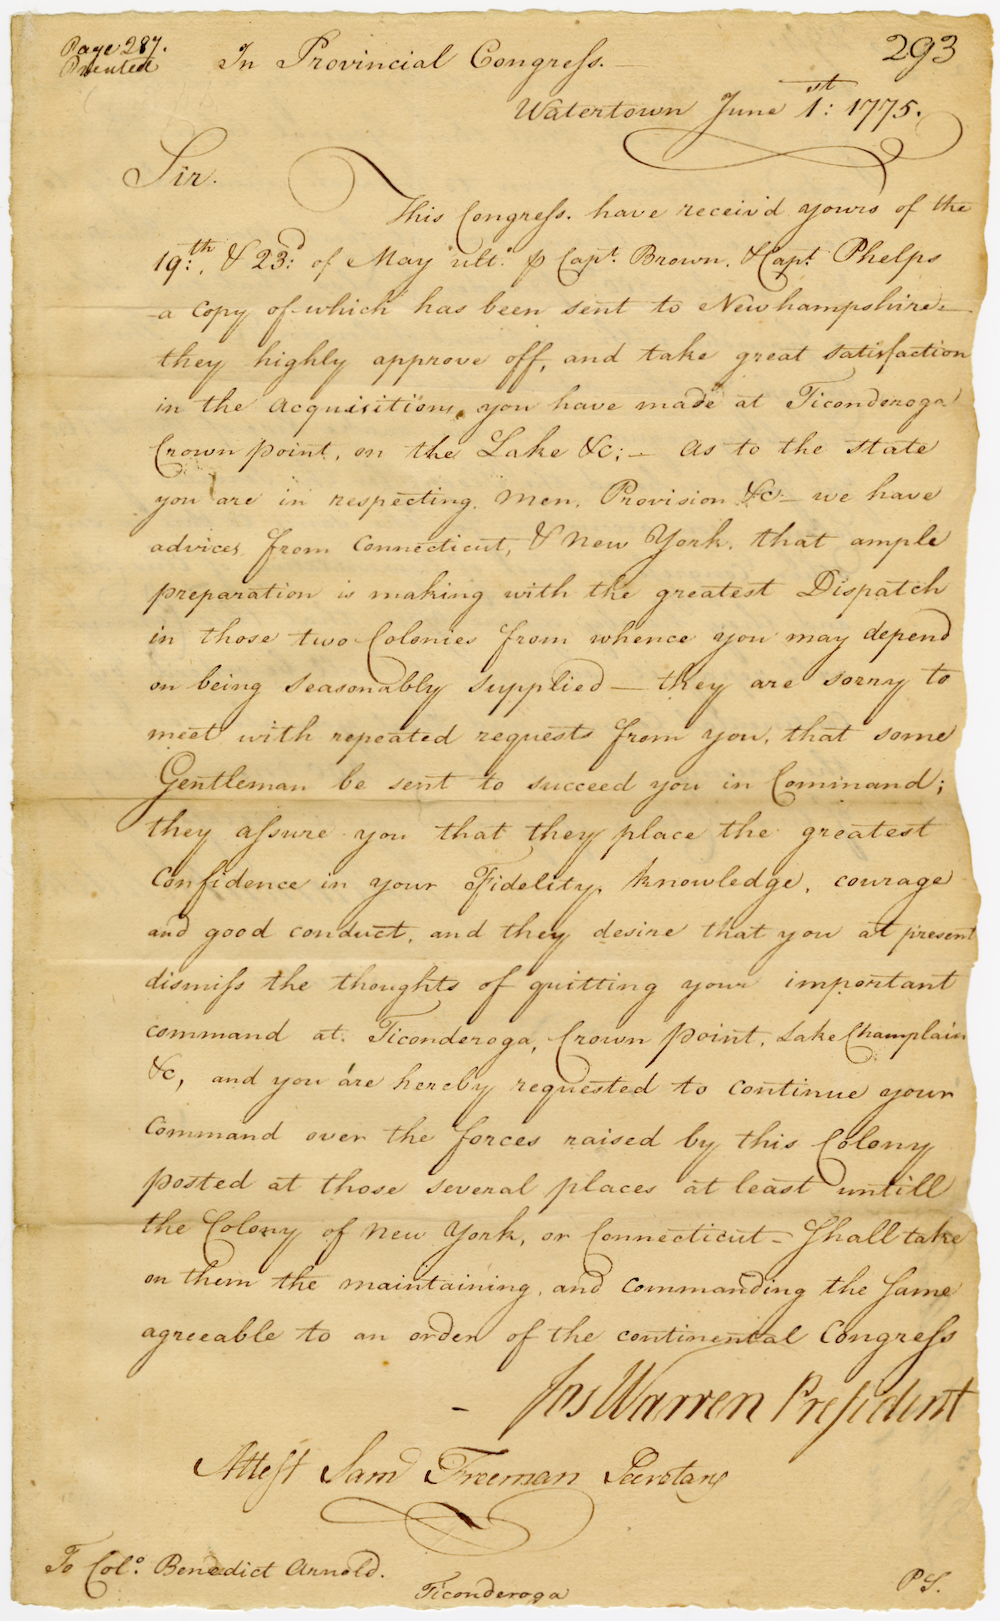 Page 287.
Printed
293
In Provincial Congress.—
Watertown June 1st: 1775.
Sir.
This Congress. have receiv'd yours of the
19:th, & 23:d of May ult:o ⅌ Capt. Brown. & Capt. Phelps
—a copy of which has been sent to Newhampshire.—
they highly approve off, and take great satisfaction
in the acquisitions you have made at Ticonderoga
Crown point, on the Lake &c:— as to the state
you are in respecting men, Provision &c— we have
advices from Connecticut, & New York. that ample
preparation is making with the greatest Dispatch
in those two Colonies from whence you may depend
on being seasonably supplied — they are sorry to
meet with repeated requests from you, that some
Gentleman be sent to succeed you in Command;
they assure you that they place the greatest
Confidence in your Fidelity, knowledge, courage
and good conduct, and they desire that you at present
dismiss the thoughts of quitting your important
command at Ticonderoga, Crown point, Lake Champlain
&c, and you are hereby requested to continue your
Command over the forces raised by this Colony
posted at those several places at least untill
the Colony of New York, or Connecticut— Shall take
on them the maintaining, and commanding the same
agreeable to an order of the continental Congress
— Jos Warren President
Attest Saml Freeman Secretary
To Col:o Benedict Arnold.
Ticonderoga
PS.